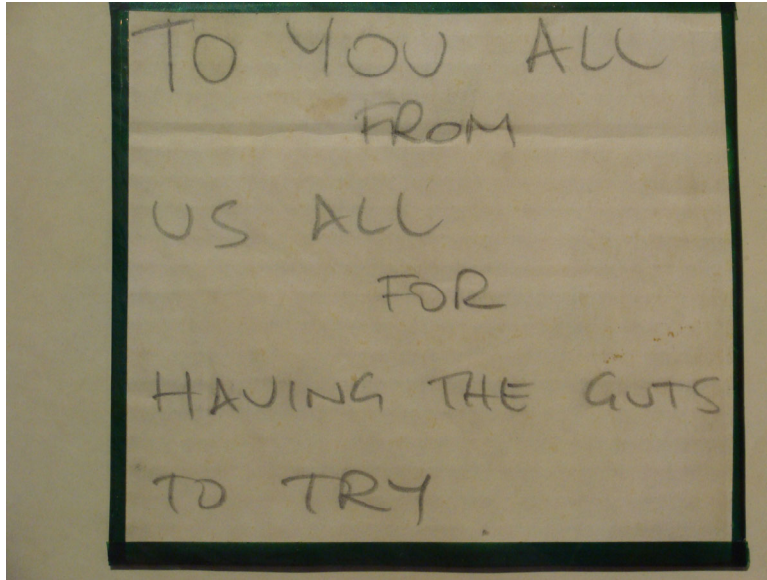 TO YOU ALL
FROM
US ALL
FOR
HAVING THE GUTS
TO TRY.